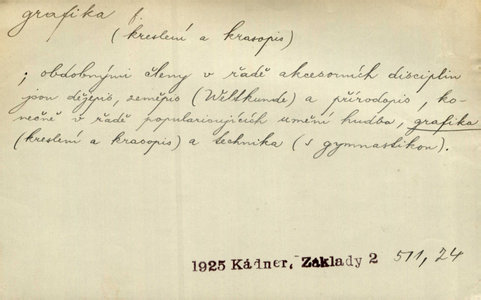 grafika f.
(kreslení a krasopis)
; obdobnými členy v řadě akcesorních disciplin
jsou dějepis, zeměpis (Weltkunde) a přírodopis, ko-
nečně v řadě popularisujících umění hudba, grafika
(kreslení a krasopis) a technika (s gymnastikou).
1925 Kádner, Základy 2 511, 24